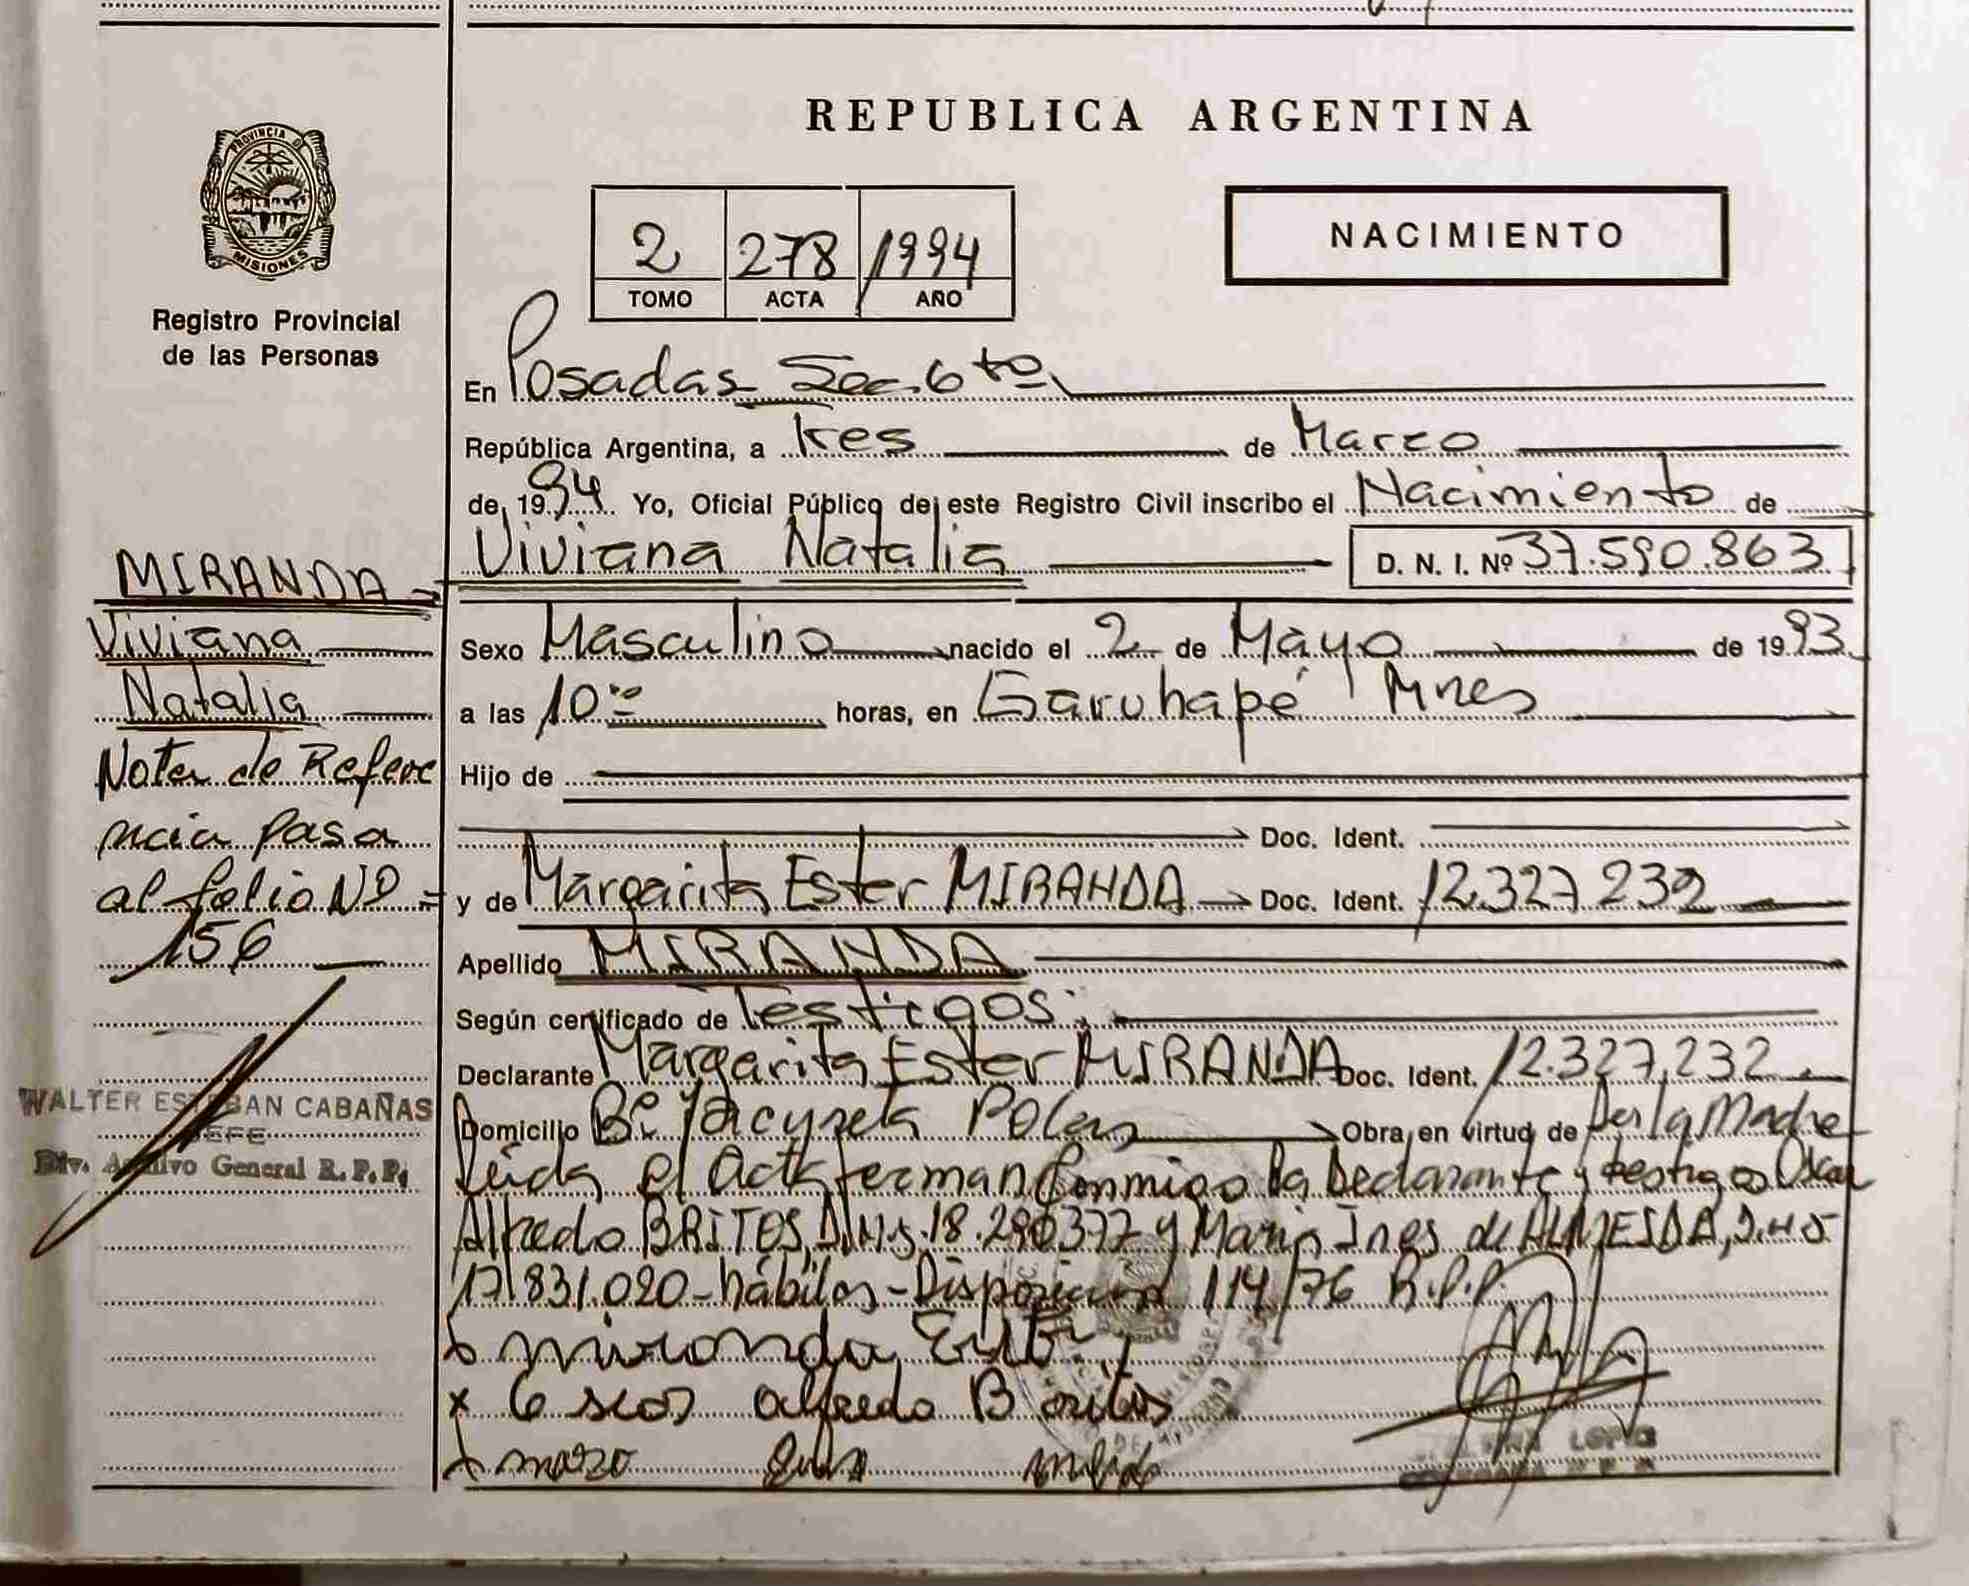 REPUBLICA ARGENTINA
PROVINCIA DE
MISIONES
Registro Provincial
de las Personas
2 278 1994
TOMO ACTA AÑO
NACIMIENTO
En Posadas Sec. 6ta
República Argentina, a Tres de Marzo
de 1994 Yo, Oficial Público de este Registro Civil inscribo el Nacimiento de
Viviana Natalia D. N. I. Nº 37.590.863
MIRANDA
Viviana
Natalia
Nota de Refere
ncia pasa
al folio Nº
156
WALTER ESTEBAN CABAÑAS
JEFE
Div. Archivo General R.P.P.
Sexo Masculino nacido el 2 de Mayo de 1993
a las 10 horas, en Garuhapé Mnes
Hijo de
Doc. Ident.
y de Margarita Ester MIRANDA Doc. Ident. 12.327.232
Apellido MIRANDA
Según certificado de Testigos
Declarante Margarita Ester MIRANDA Doc. Ident. 12.327.232
Domicilio Bº Yacyreta Pdas Obra en virtud de Ser la Madre
Leida el Acta firman Conmigo la Declarante y testigos Oscar
Alfredo BRITOS, D.N.I. 18.290377 y Maria Ines de ALMEIDA, D.N.I
17.831.020 - hábiles - Disposicion 114/76 R.P.P.
x miranda Ester
x alfredo Britos
x
LOPEZ